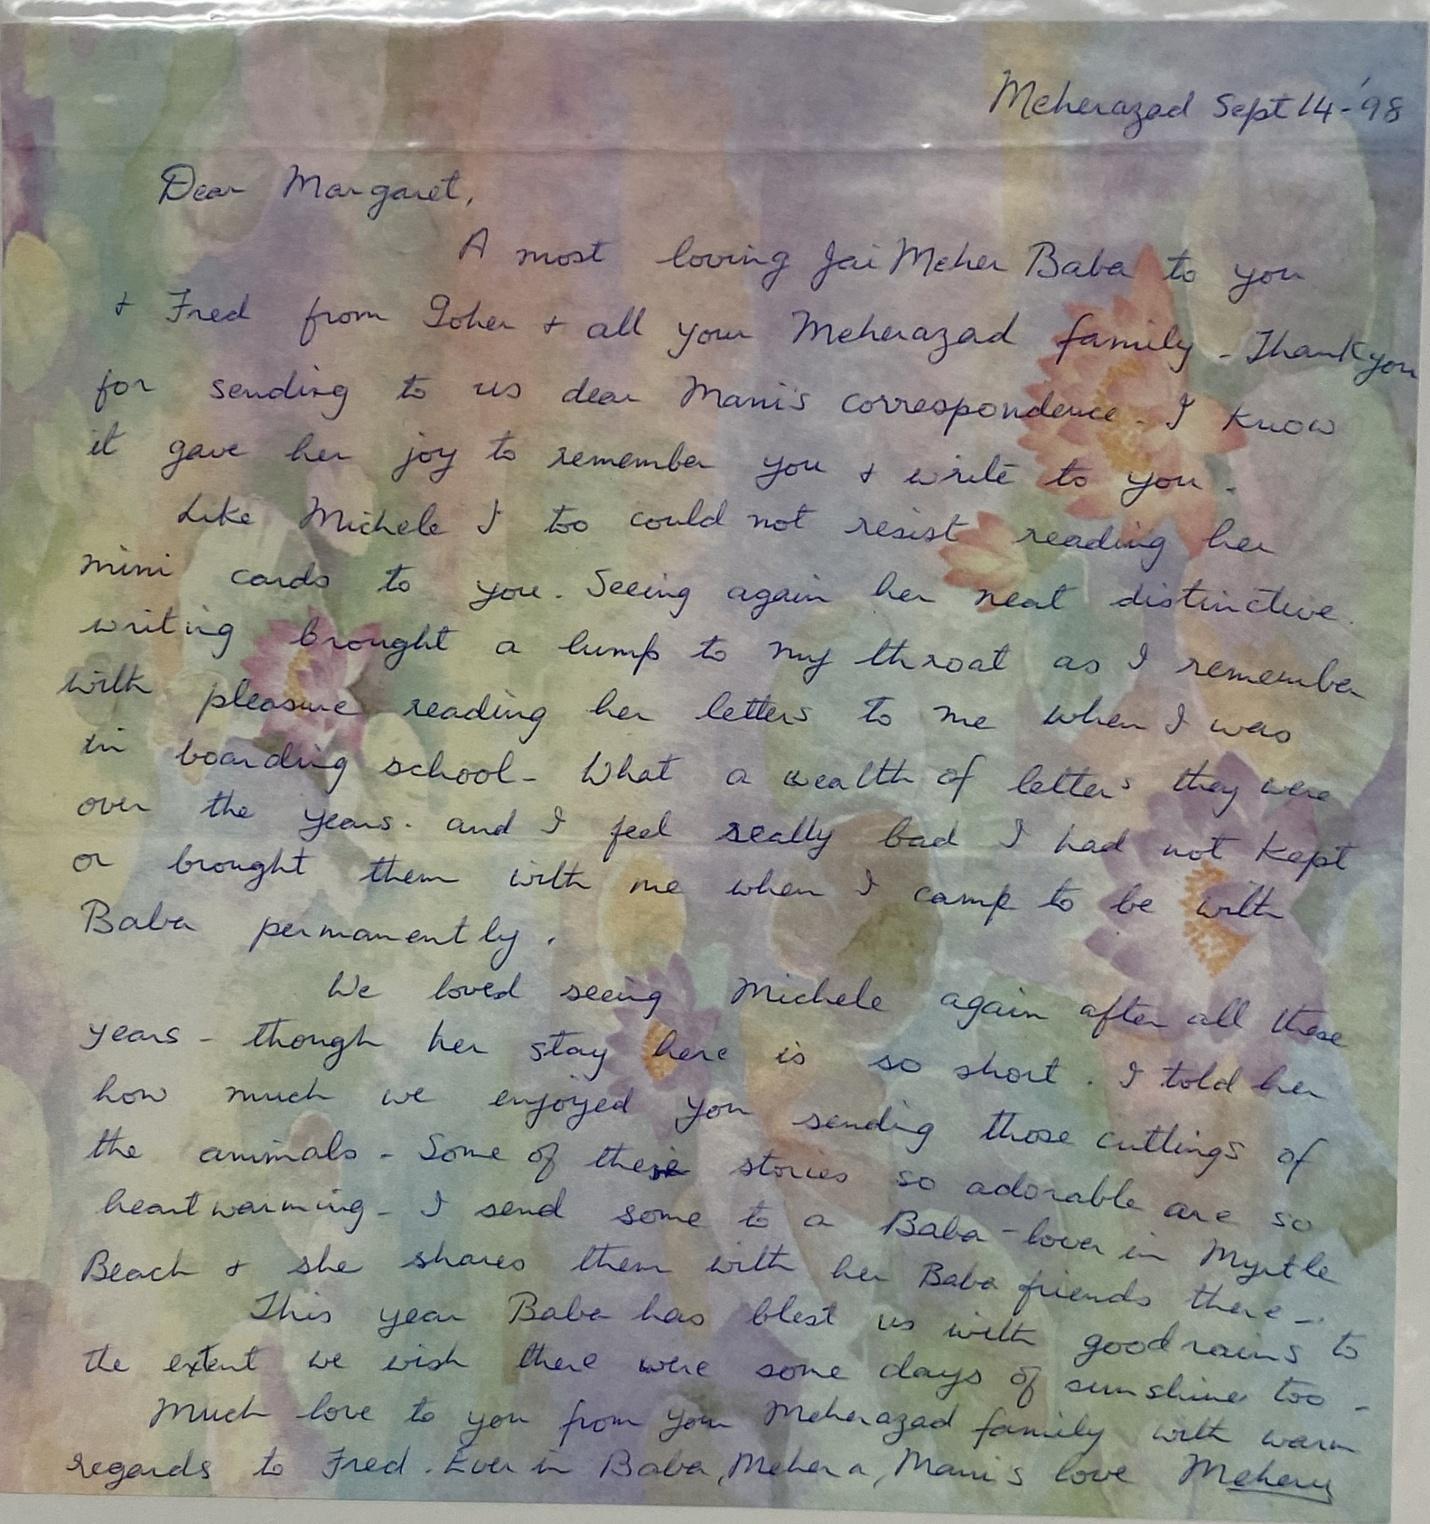 Meherazad Sept 14-'98
Dear Margaret,
A most loving Jai Meher Baba to you
+ Fred from Goher + all your Meherazad family - Thank you
for sending to us dear Mani's correspondence. I know
it gave her joy to remember you + write to you.
Like Michele I too could not resist reading her
mini cards to you. Seeing again her neat distinctive
writing brought a lump to my throat as I remember
with pleasure reading her letters to me when I was
in boarding school - What a wealth of letters they were
over the years. and I feel really bad I had not kept
or brought them with me when I came to be with
Baba permanently.
We loved seeing Michele again after all these
years - though her stay here is so short. I told her
how much we enjoyed your sending those cuttings of
the animals - Some of these stories so adorable are so
heartwarming - I send some to a Baba-lover in Myrtle
Beach + she shares them with her Baba friends there -
This year Baba has blest us with good rains to
the extent we wish there were some days of sunshine too -
Much love to you from your Meherazad family with warm
regards to Fred. Ever in Baba, Mehera, Mani's love Meheru